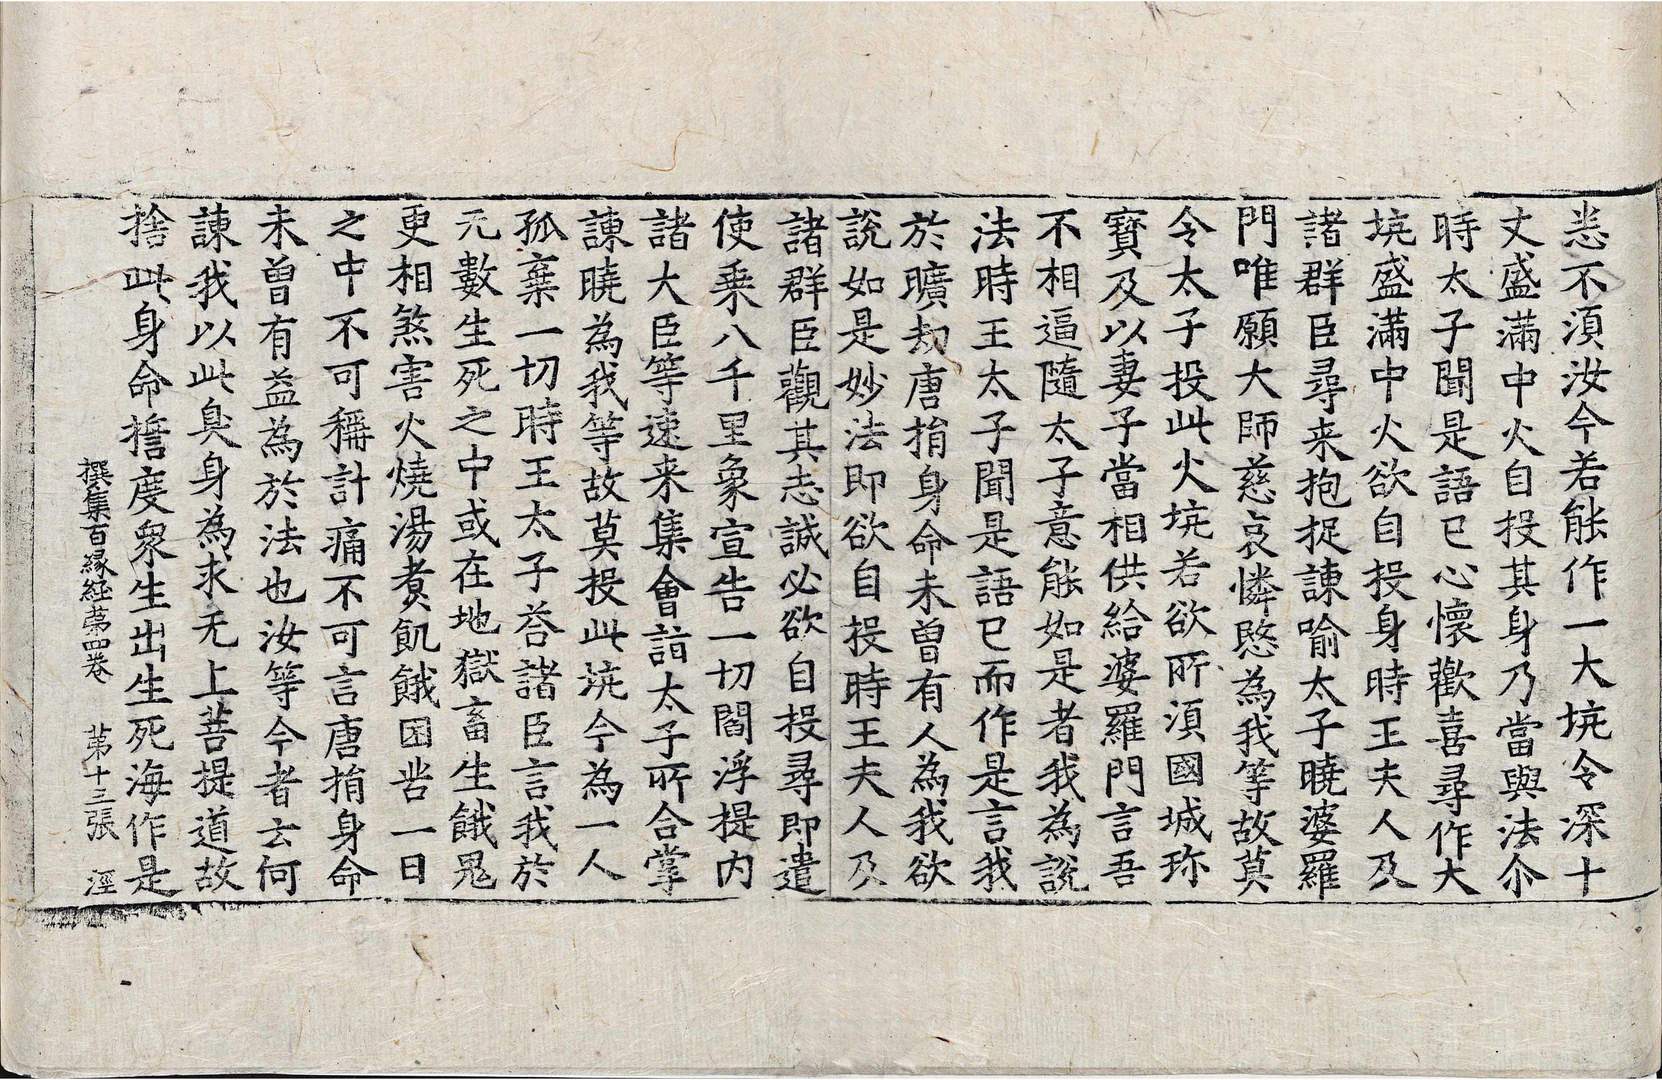 悉不湏汝今若能作一大坑令深十
丈盛滿中火自投其身乃當與法尒
時太子聞是語已心懷歡喜尋作大
坑盛滿中火欲自投身時王夫人及
諸群臣尋来抱捉諫喻太子曉婆羅
門唯願大師慈哀憐愍為我等故莫
令太子投此火坑若欲所湏國城珎
寶及以妻子當相供給婆羅門言吾
不相逼隨太子意能如是者我為說
法時王太子聞是語已而作是言我
於曠劫唐捐身命未曾有人為我欲
說如是妙法即欲自投時王夫人及
諸群臣觀其志誠必欲自投尋即遣
使乗八千里象宣告一切閻浮提内
諸大臣等速来集會詣太子所合掌
諫曉為我等故莫投此坑今為一人
孤棄一切時王太子荅諸臣言我於
元數生死之中或在地獄畜生餓鬼
更相煞害火燒湯煑飢餓困苦一日
之中不可稱計痛不可言唐捐身命
未曾有益為於法也汝等今者云何
諫我以此臭身為求无上菩提道故
捨此身命擔度衆生出生死海作是
撰集百縁経苐四巻　苐十三張　溼